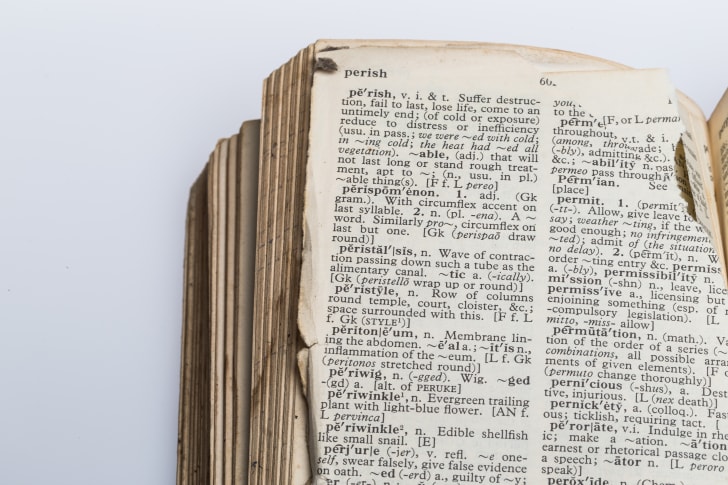 perish
pĕ'rish, v. i. & t. Suffer destruc-
tion, fail to last, lose life, come to an
untimely end; (of cold or exposure)
reduce to distress or inefficiency
(usu. in pass.; we were ~ed with cold;
in ~ing cold; the heat had ~ed all
vegetation). ~able, (adj.) that will
not last long or stand rough treat-
ment, apt to ~; (n., usu. in pl.)
~able thing(s). [F f. L pereo]
pĕrispŏm'ėnon. 1. adj. (Gk
gram.). With circumflex accent on
last syllable. 2. n. (pl. -ena). A ~
word. Similarly pro~, circumflex on
last but one. [Gk (perispaō draw
round)]
pĕristăl'|sĭs, n. Wave of contrac-
tion passing down such a tube as the
alimentary canal. ~tic a. (-ically).
[Gk (peristellō wrap up or round)]
pĕ'ristȳle, n. Row of columns
round temple, court, cloister, &c.;
space surrounded with this. [F f. L
f. Gk (STYLE¹)]
pĕriton|ē'um, n. Membrane lin-
ing the abdomen. ~ē'al a.; ~īt'is n.,
inflammation of the ~eum. [L f. Gk
(peritonos stretched round)]
pĕ'riwig, n. (-gged). Wig. ~ged
(-gd) a. [alt. of PERUKE]
pĕ'riwinkle¹, n. Evergreen trailing
plant with light-blue flower. [AN f.
L pervinca]
pĕ'riwinkle², n. Edible shellfish
like small snail. [E]
pẽrj'ur|e (-jer), v. refl. ~e one-
self, swear falsely, give false evidence
on oath. ~ed (-erd) a., guilty of ~y;
you,
to the
[F, or L permar
throughout, v.t. & i.
(among, through
(-bly), admitting &c.).
&c.; ~abĭl'itў n.
permeo pass through
Pẽrm'ian. See
[place]
permit. 1. (permit'
(-tt-). Allow, give leave
say; weather ~ting, if the w
good enough; no infringemen
~ted); admit of (the situation
no delay). 2. (pẽrm'ĭt), n. W
order ~ting entry &c. permiss
a. (-bly), permissibil'itў n.
mi'ssion (-shn) n., leave, lice
permiss'ive a., licensing but
enjoining something (esp. of
-compulsory legislation). [L
mitto, -miss- allow]
pẽrmūtā'tion, n. (math.). Va
tion of the order of a series (~
combinations, all possible arra
ments of given elements). [F o
(permuto change thoroughly)]
perni'cious (-shus), a. Dest
tive, injurious. [L (nex death)]
pernick'ėtў, a. (colloq.). Fast
ous; ticklish, requiring tact. [
pĕ'ror|āte, v.i. Indulge in rh
ic; make a ~ation. ~ā'tion
earnest or rhetorical passage clo
a speech; ~ātor n. [L peroro
speak)]